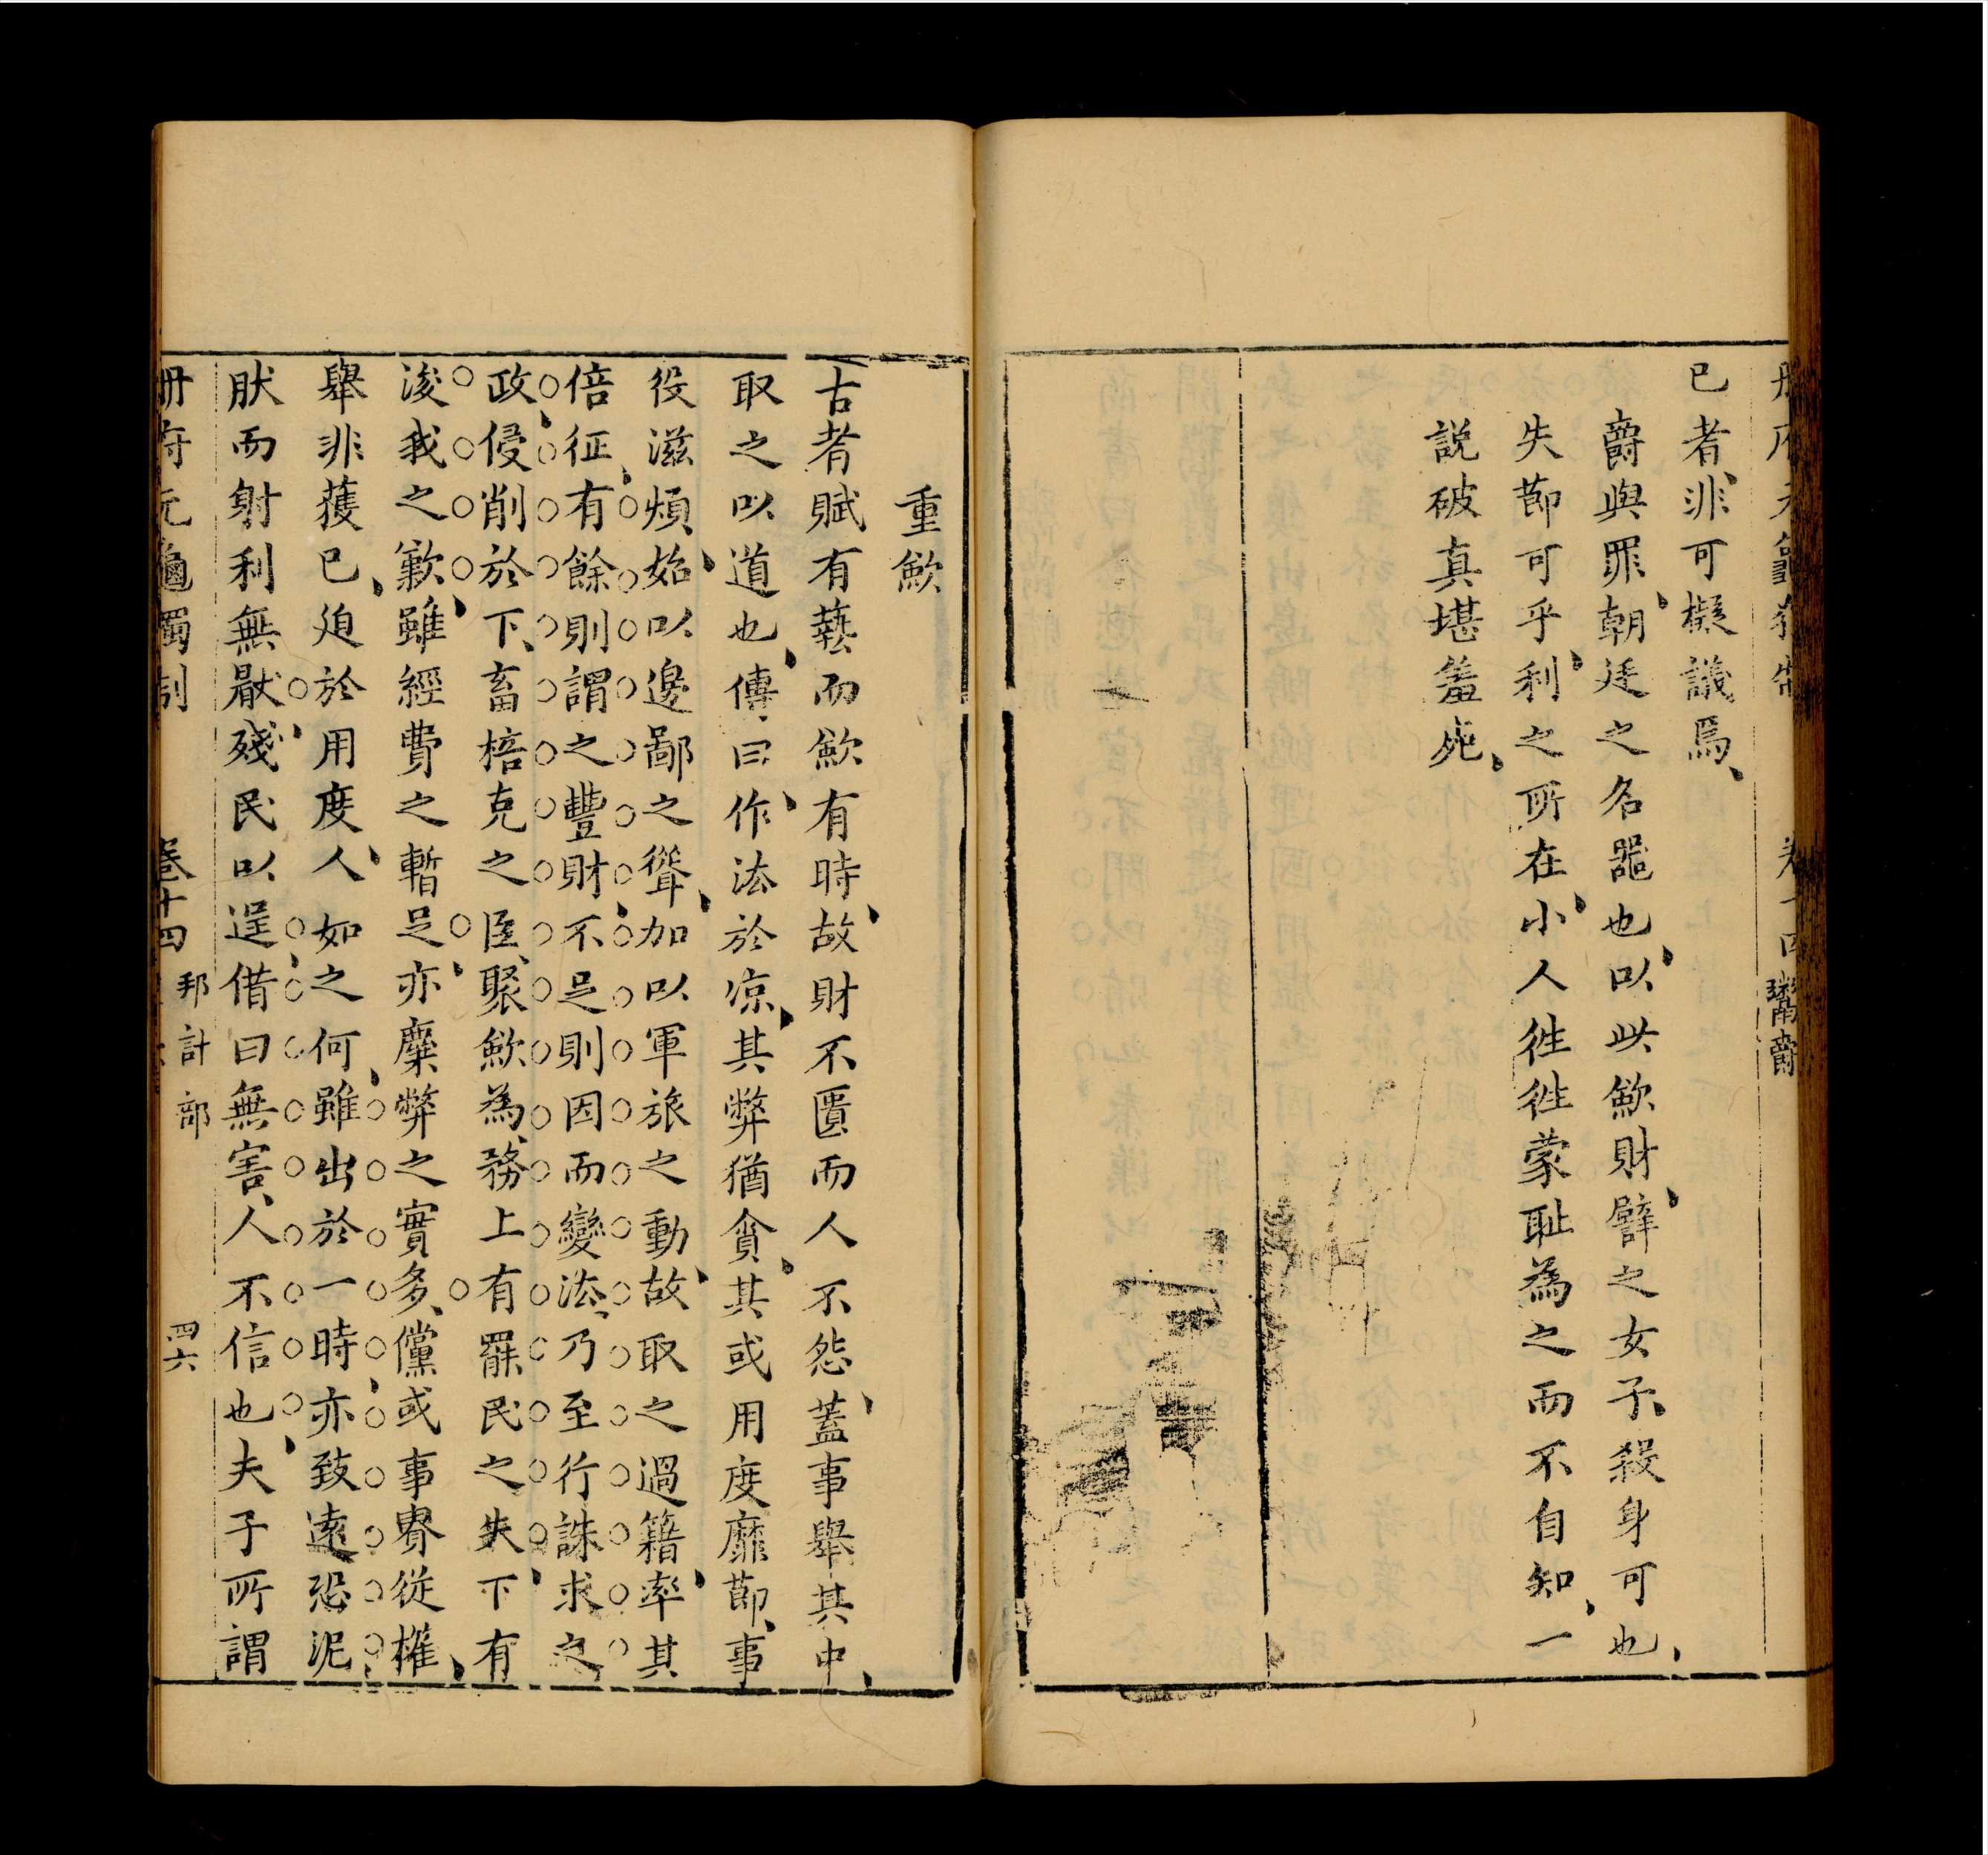 已者、非可擬議焉、
爵與罪、朝廷之名器也、以此歛財、譬之女子、殺身可也、
失莭可乎、利之所在、小人徃徃蒙耻為之而不自知、一
説破真堪羞死、
鬻爵
重歛
古者賦有藝而歛有時、故財不匱而人不怨、蓋事舉其中、
取之以道也、傳曰、作法於凉、其弊猶貪、其或用度靡莭、事
役滋煩、始以邊鄙之聳、加以軍旅之動、故取之過籍、率其
倍征、有餘則謂之豐財、不足則因而變法、乃至行誅求之
政、侵削於下、畜掊克之臣、聚歛為務、上有罷民之失、下有
浚我之歎、雖經費之暫足、亦糜弊之實多、儻或事寡從權、
舉非獲已、廹於用度、人如之何、雖出於一時、亦致遠恐泥、
肰而射利無猒、殘民以逞、借曰無害、人不信也、夫子所謂
冊府元龜獨制 卷十四 邦計部 四六